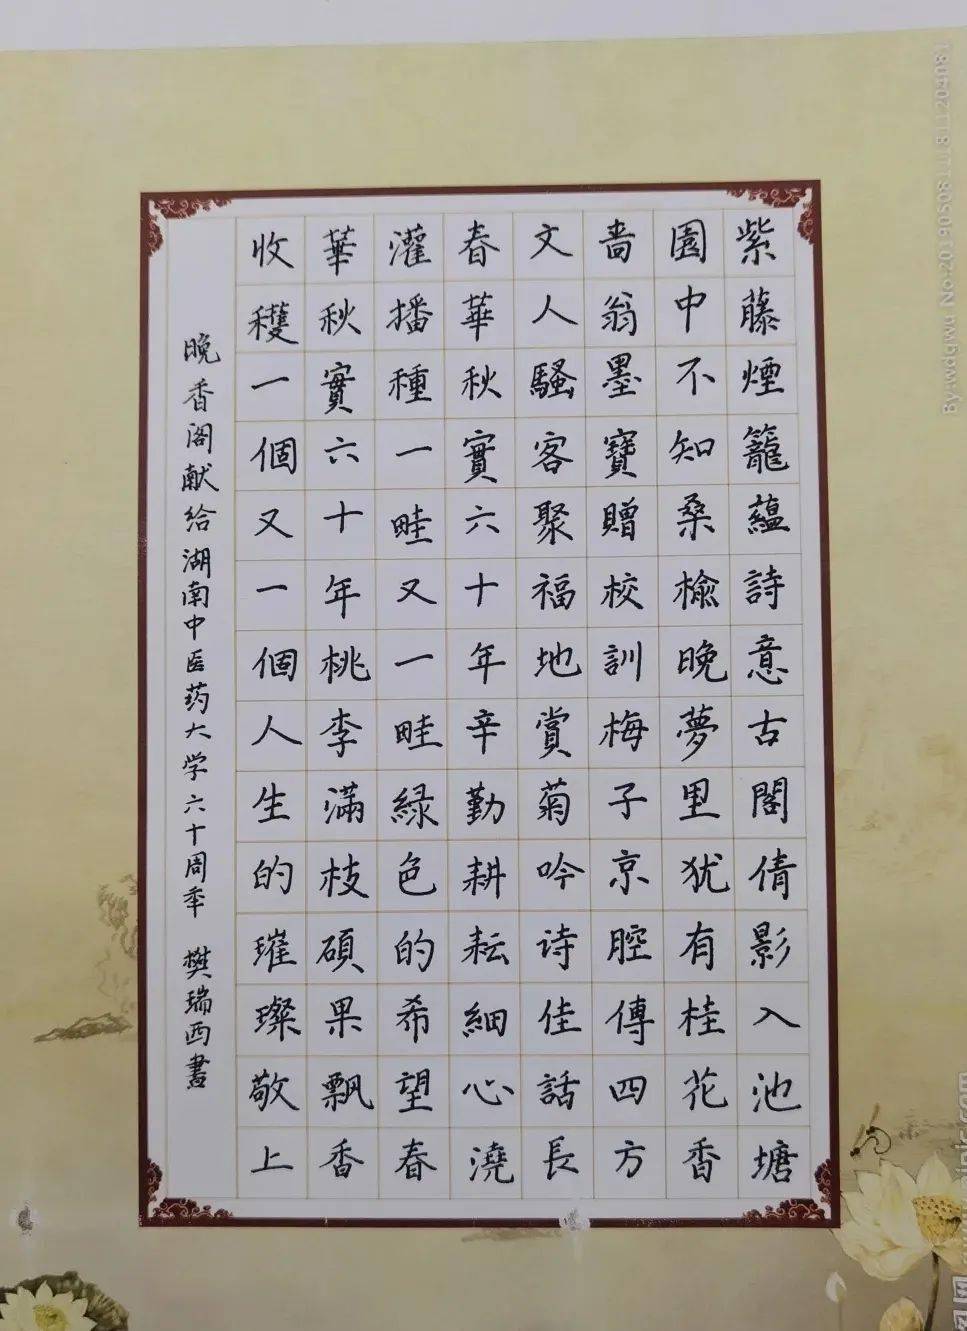 紫藤煙籠蘊詩意古閣倩影入池塘
園中不知桑榆晚夢里犹有桂花香
嗇翁墨寶贈校訓梅子京腔傳四方
文人騷客聚福地賞菊吟诗佳話長
春華秋實六十年辛勤耕耘細心澆
灌播種一畦又一畦綠色的希望春
華秋實六十年桃李滿枝碩果飄香
收穫一個又一個人生的璀璨敬上
晚香阁献给湖南中医药大学六十周年 樊瑞西書
By:wdgwu No:20190508111811204081